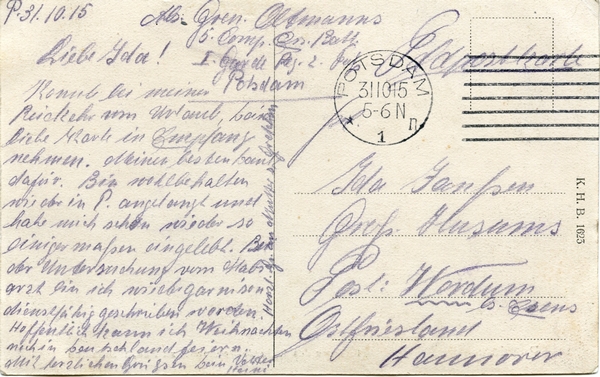 P. 31.10.15
Abs. Gren. Oltmanns
5. Comp. Ers. Batl.
I Garde Rg. z. Fuß
Potsdam
Feldpostkarte
POTSDAM
311015
5-6 N
* 1 n
Liebe Ida!
Konnte bei meiner
Rückkehr vom Urlaub, Deine
liebe Karte in Empfang
nehmen. Meinen besten Dank
dafür. Bin wohlbehalten
wieder in P. angelangt und
habe mich schon wieder so
einigermaßen eingelebt. Bei
der Untersuchung vom Stabs
arzt bin ich wieder garnison
dienstfähig geschrieben worden.
Hoffentlich kann ich Weihnachten
noch in Deutschland feiern.
Mit herzlichen Grüßen Dein Vetter
Ida Janßen
Groß Husums
Post: Werdum
b. Esens
Ostfriesland
Hannover
K. H. B. 1625